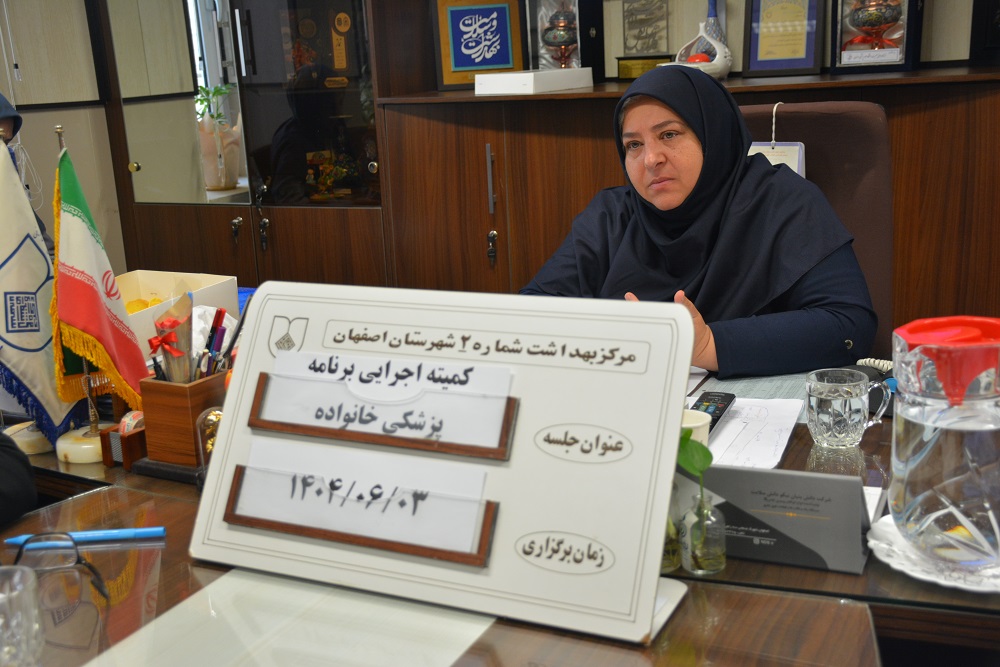 مرکز بهداشت شماره ۲ شهرستان اصفهان
عنوان جلسه
کمیته اجرایی برنامه
پزشکی خانواده
زمان برگزاری
۱۴۰۴/۰۶/۰۳